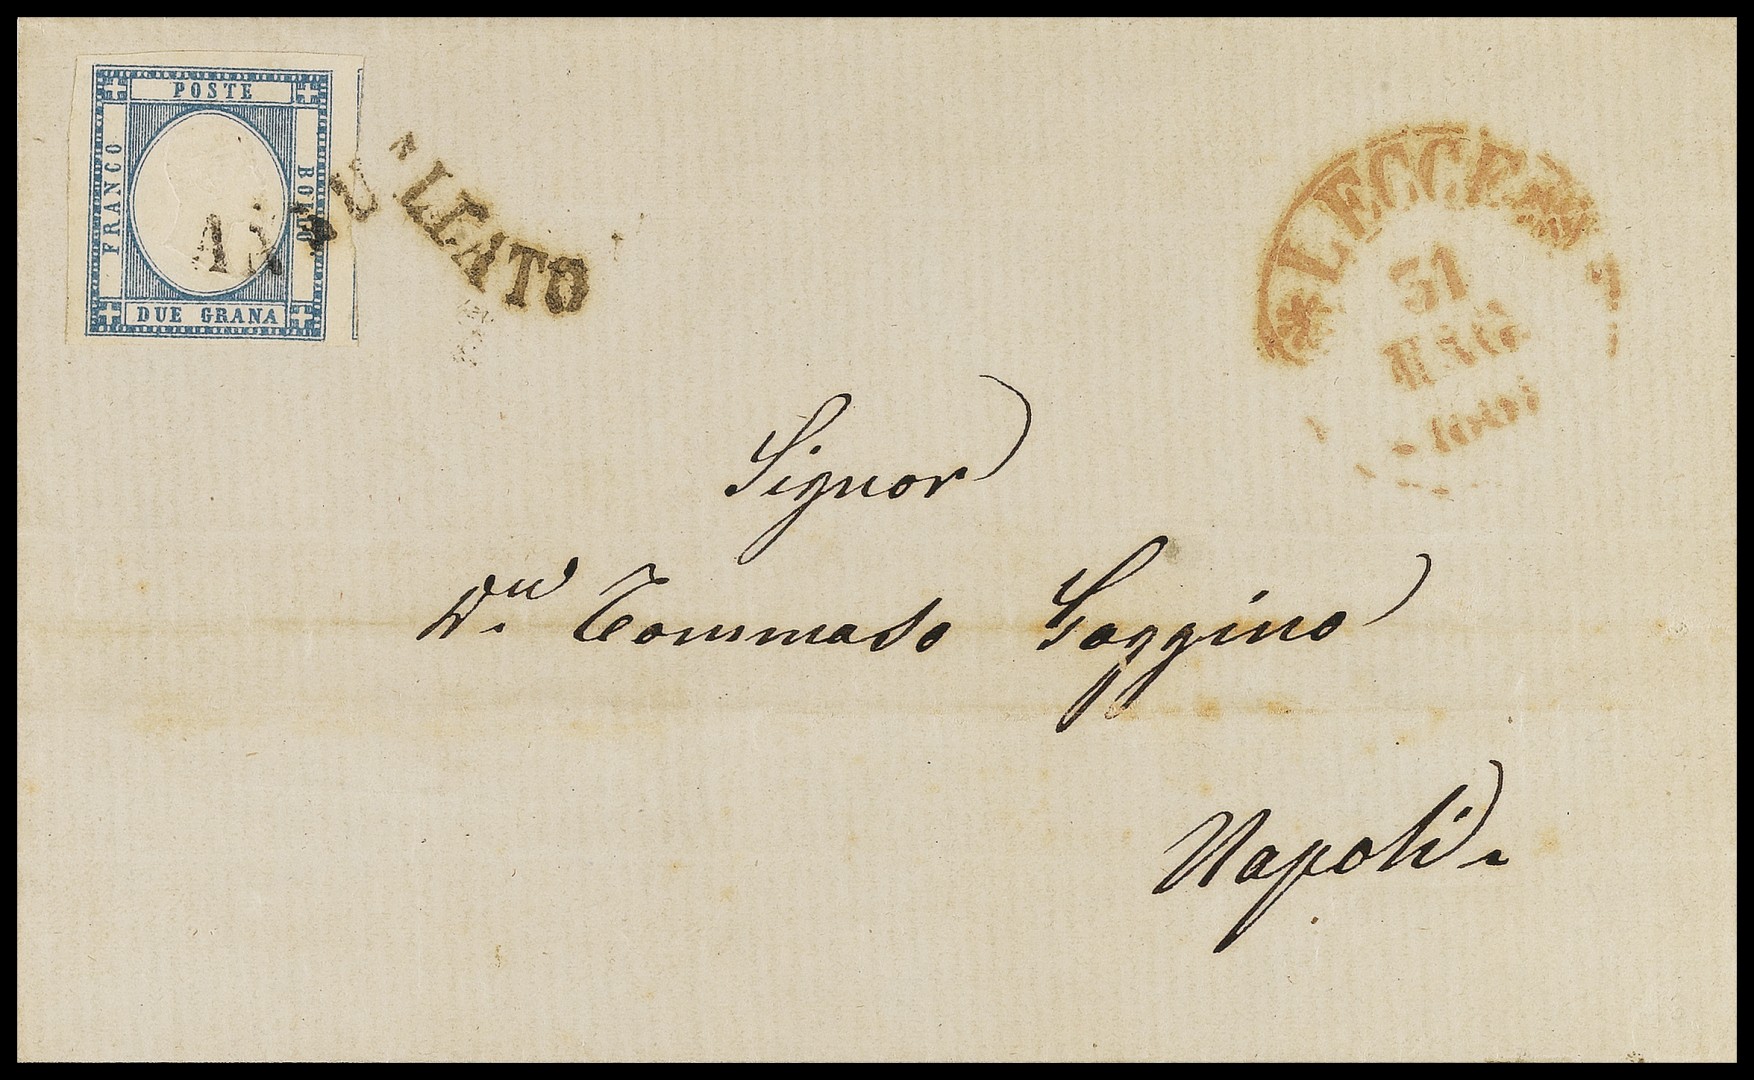 POSTE
FRANCO
BOLLO
DUE GRANA
ANNULLATO
LECCE
31
MAG
Signor
D.n Tommaso Goggino
Napoli.